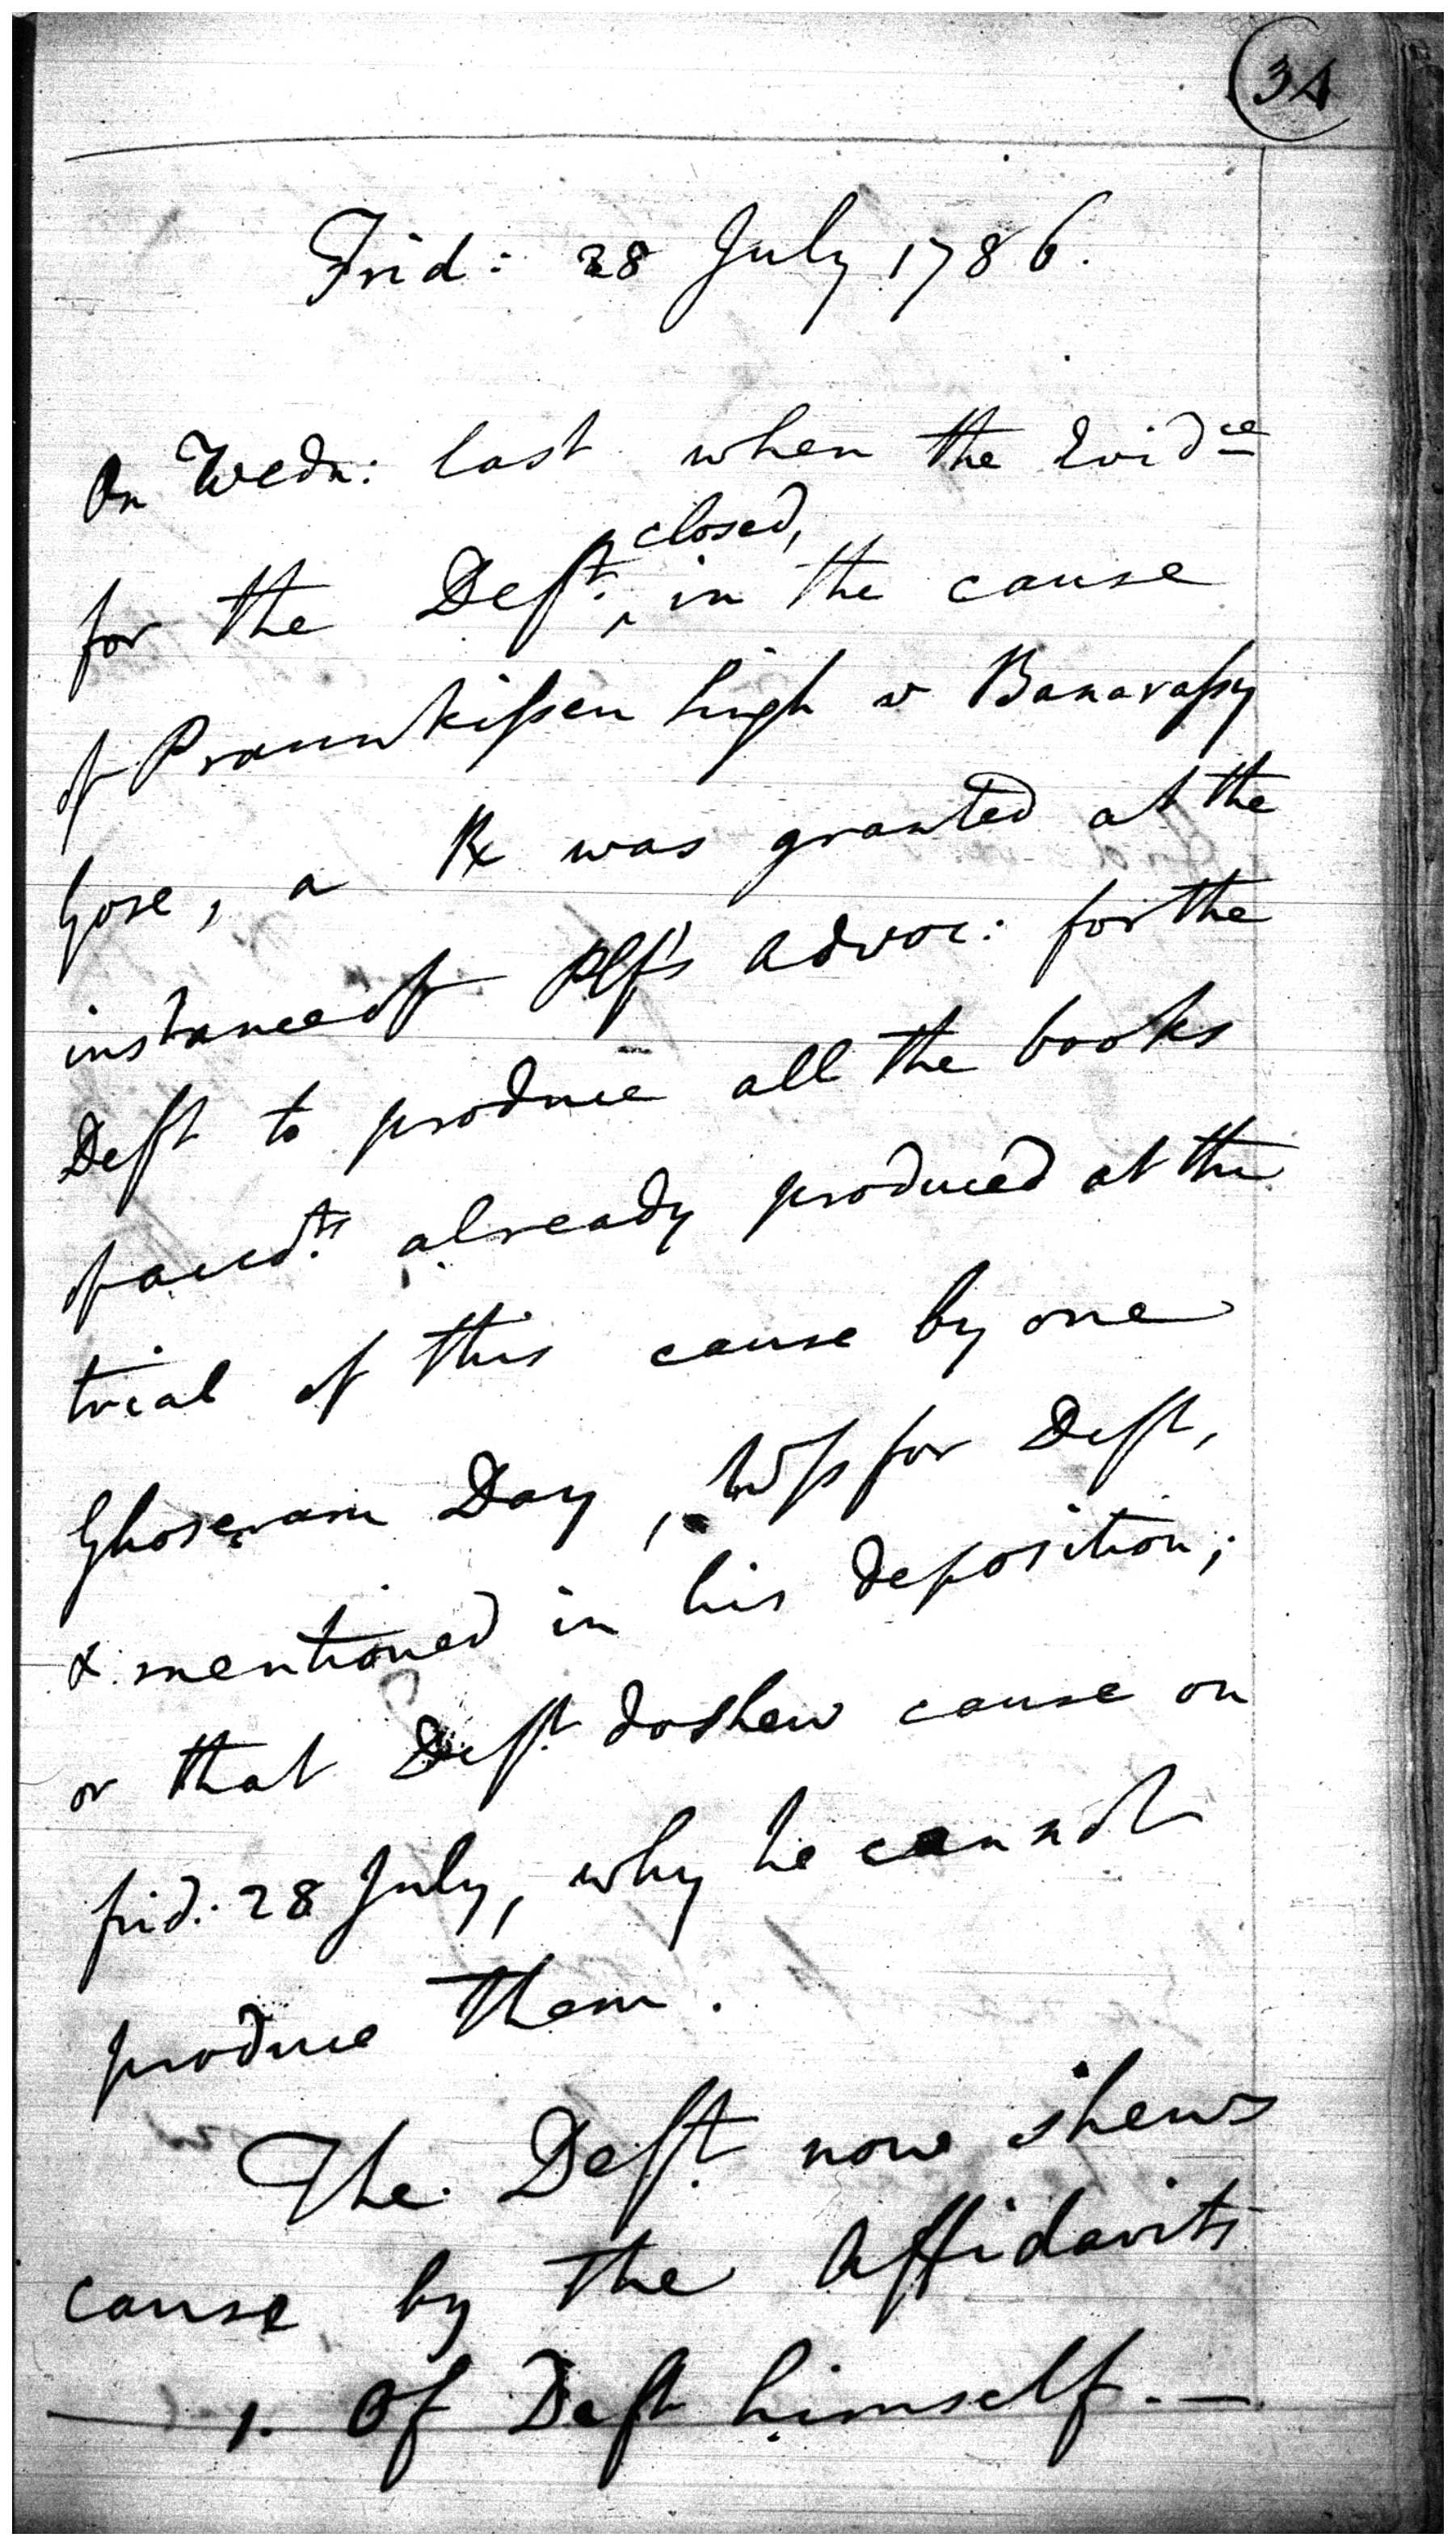 34
Frid: 28 July 1786.
On Wedn: last when the Evid.ce
closed,
for the Deft. ‸ in the cause
of Praunkissen Singh v Banarassy
Gose, a Rx was granted at the
instance of Plf's Advoc: for the
Deft to produce all the books
of accts. already produced at the
trial of this cause by one
Ghoseram Day, Wss for Deft,
& mentioned in his deposition;
or that Deft. do shew cause on
frid: 28 July, why he cannot
produce them.
The Deft. now shews
cause by the Affidavits
1. Of Deft himself. —